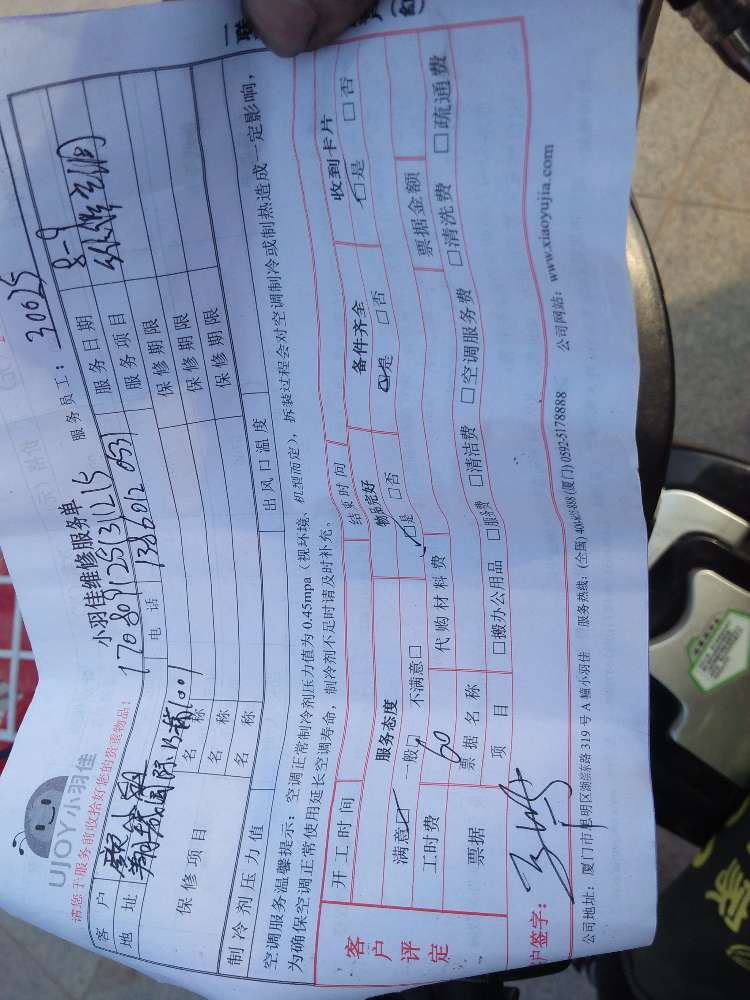 UJOY小羽佳
请您于服务前收拾好您的贵重物品!
小羽佳维修服务单
服务员工: 30625
1708091251311215
客户
服务日期 8-9
地址 国际 1001
电话 1386012053
服务项目 空调
保修项目
名称
保修期限
名称
保修期限
名称
保修期限
制冷剂压力值
出风口温度
空调服务温馨提示: 空调正常制冷剂压力值为 0.45mpa (视环境、机型而定), 拆装过程会对空调制冷或制热造成一定影响,
为确保空调正常使用延长空调寿命, 制冷剂不足时请及时补充。
客户评定
开工时间
结束时间
服务态度
物品完好
备件齐全
收到卡片
满意□ 一般□ 不满意□
□是 □否
□是 □否
□是 □否
工时费 60
代购材料费
票据
票据名称
票据金额
项目
□搬办公用品 □服务费 □清洁费 □空调服务费 □清洗费 □疏通费
户签字:
公司地址: 厦门市思明区湖滨东路 319 号 A 幢小羽佳
服务热线: (全国) 4016-5888 (厦门) 0592-5178888
公司网站: www.xiaoyujia.com